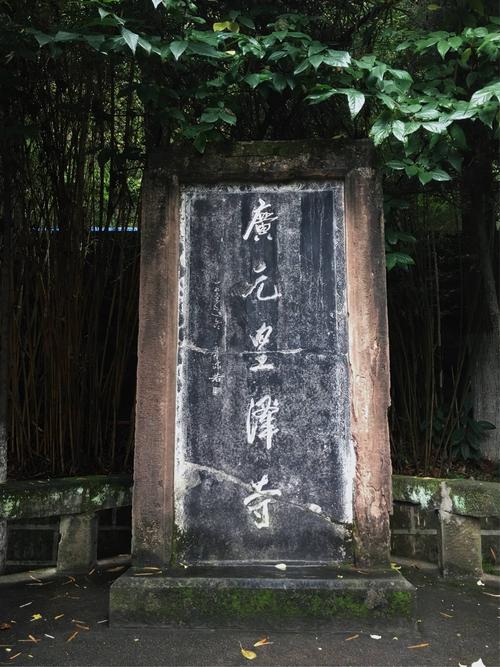 廣元皇澤寺